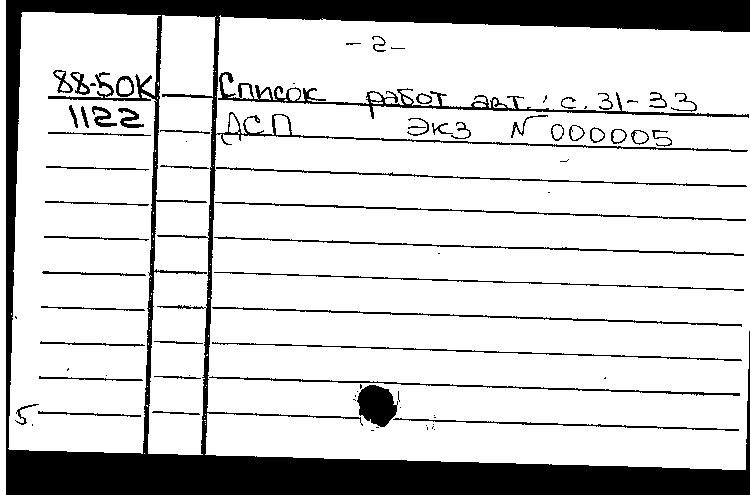 -2-
88-50К Список работ авт.: с. 31-33
1122 ДСП Экз № 000005
5.